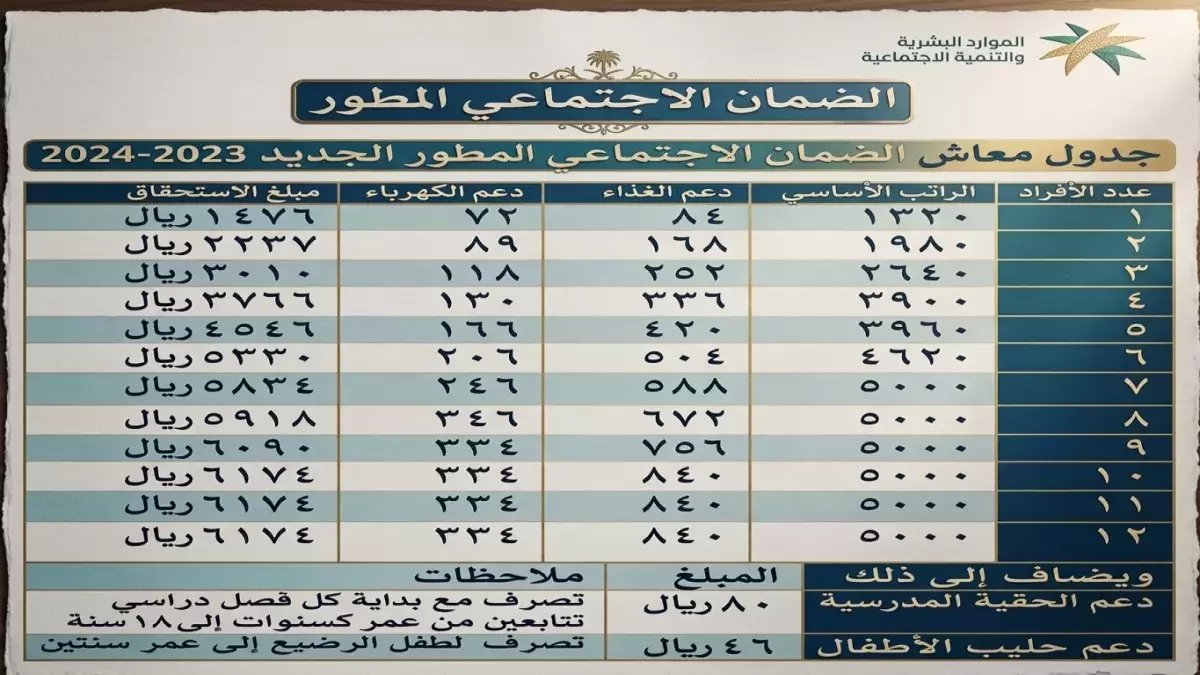 الموارد البشرية
والتنمية الاجتماعية
الضمان الاجتماعي المطور
جدول معاش الضمان الاجتماعي المطور الجديد 2023-2024
عدد الأفراد الراتب الأساسي دعم الغذاء دعم الكهرباء مبلغ الاستحقاق
١ ١٣٢٠ ٨٤ ٧٢ ١٤٧٦ ريال
٢ ١٩٨٠ ١٦٨ ٨٩ ٢٢٣٧ ريال
٣ ٢٦٤٠ ٢٥٢ ١١٨ ٣٠١٠ ريال
٤ ٣٩٠٠ ٣٣٦ ١٣٠ ٣٧٦٦ ريال
٥ ٣٩٦٠ ٤٢٠ ١٦٦ ٤٥٤٦ ريال
٦ ٤٦٢٠ ٥٠٤ ٢٠٦ ٥٣٣٠ ريال
٧ ٥٠٠٠ ٥٨٨ ٢٤٦ ٥٨٣٤ ريال
٨ ٥٠٠٠ ٦٧٢ ٣٤٦ ٥٩١٨ ريال
٩ ٥٠٠٠ ٧٥٦ ٣٣٤ ٦٠٩٠ ريال
١٠ ٥٠٠٠ ٨٤٠ ٣٣٤ ٦١٧٤ ريال
١١ ٥٠٠٠ ٨٤٠ ٣٣٤ ٦١٧٤ ريال
١٢ ٥٠٠٠ ٨٤٠ ٣٣٤ ٦١٧٤ ريال
ويضاف إلى ذلك المبلغ ملاحظات
دعم الحقية المدرسية ٨٠ ريال تصرف مع بداية كل فصل دراسي
تتابعين من عمر كسنوات إلى ١٨ سنة
دعم حليب الأطفال ٤٦ ريال تصرف لطفل الرضيع إلى عمر سنتين